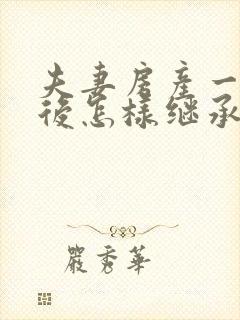 夫妻房产一
后怎样继承
严秀华